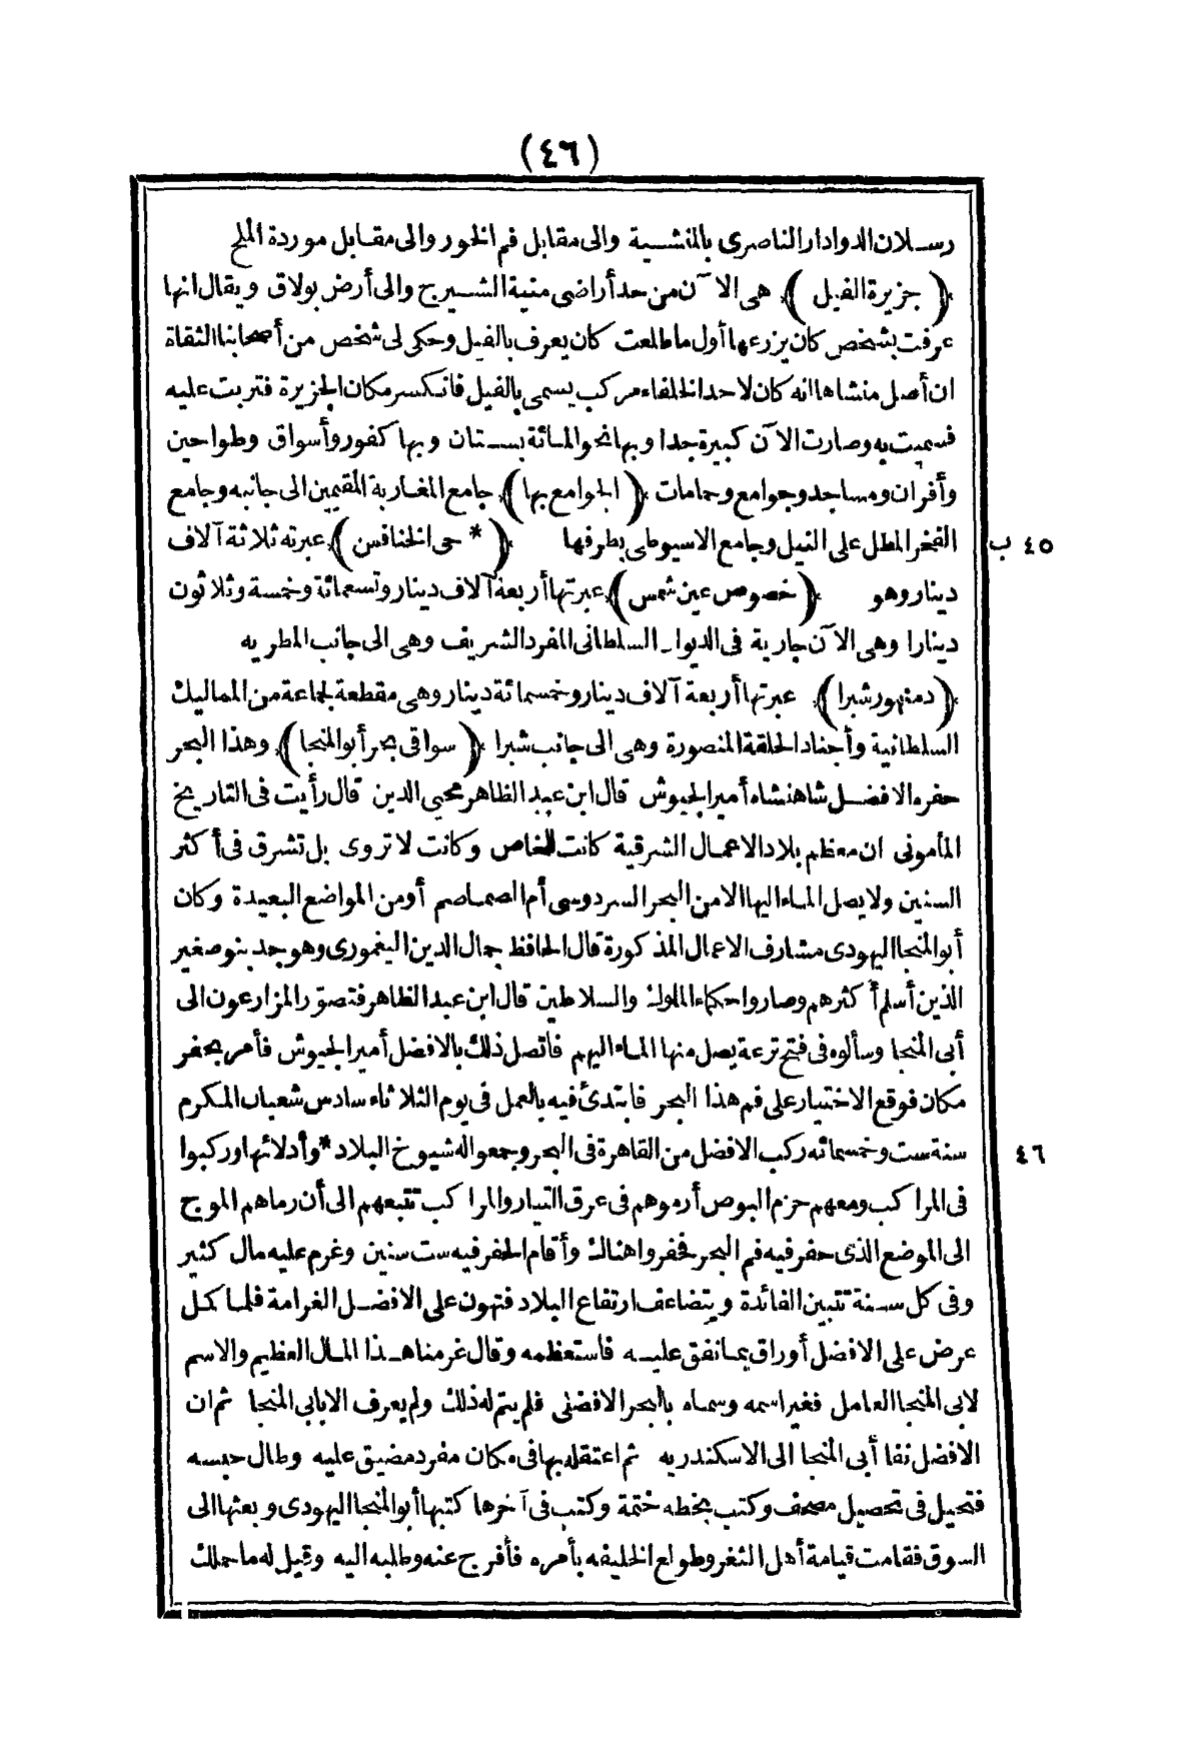 (٤٦)
رسلان الدوادار الناصرى بالمنشية والى مقابل فم الخور والى مقابل موردة الملح
﴿ جزيرة الفيل ﴾ هى الآن من حد أراضى منية الشيرج والى أرض بولاق ويقال انها
عرفت بشخص كان يزرعها أول ما طلعت كان يعرف بالفيل وحكى لى شخص من أصحابنا الثقاة
ان أصل منشاها انه كان لاحد الخلفاء مركب يسمى بالفيل فانكسر مكان الجزيرة فتربت عليه
فسميت به وصارت الآن كبيرة جدا وبها نحو المائة بستان وبها كفور وأسواق وطواحين
وأفران ومساجد وجوامع وحمامات ﴿ الجوامع بها ﴾ جامع المغاربة المقيمين الى جانبه وجامع
الفخر المطل على النيل وجامع الاسيوطى بطرفها ﴿ * حى الخنافس ﴾ عبرته ثلاثة آلاف
٤٥ ب
دينار وهو ﴿ خصوص عين شمس ﴾ عبرتها أربعة آلاف دينار وتسعمائة وخمسة وثلاثون
دينارا وهى الآن جارية فى الديوا السلطانى المفرد الشريف وهى الى جانب المطريه
﴿ دمنهور شبرا ﴾ عبرتها أربعة آلاف دينار وخمسمائة دينار وهى مقطعة لجماعة من المماليك
السلطانية وأجناد الحلقة المنصورة وهى الى جانب شبرا ﴿ سواقى بحر أبو المنجا ﴾ وهذا البحر
حفره الافضل شاهنشاه أمير الجيوش قال ابن عبد الظاهر محيى الدين قال رأيت فى التاريخ
المأمونى ان معظم بلاد الاعمال الشرقية كانت للخاص وكانت لا تروى بل تشرق فى أكثر
السنين ولا يصل الماء اليها الا من البحر السردوسى أم الصماصم أو من المواضع البعيدة وكان
أبو المنجا اليهودى مشارف الاعمال المذكورة قال الحافظ جمال الدين اليغمورى وهو جد بنو صغير
الذين أسلم أكثرهم وصاروا حكماء الملوك والسلاطين قال ابن عبد الظاهر فتصوّر المزارعون الى
أبى المنجا وسألوه فى فتح ترعة يصل منها الماء اليهم فاتصل ذلك بالافضل أمير الجيوش فأمر بحفر
مكان فوقع الاختيار على فم هذا البحر فابتدئ فيه بالعمل فى يوم الثلاثاء سادس شعبان المكرم
سنة ست وخمسمائه ركب الافضل من القاهرة فى البحر وجمعوا له شيوخ البلاد * وأدلائها وركبوا
٤٦
فى المراكب ومعهم حزم البوص أرموهم فى عرق التيار والمراكب تتبعهم الى أن رماهم الموج
الى الموضع الذى حفر فيه فم البحر فحفروا هناك وأقام الحفر فيه ست سنين وغرم عليه مال كثير
وفى كل سنة تتبين الفائدة ويتضاعف ارتفاع البلاد فتهون على الافضل الغرامة فلما كمل
عرض على الافضل أوراق بما نفق عليه فاستعظمه وقال غرمنا هذا المال العظيم والاسم
لابى المنجا العامل فغير اسمه وسماه بالبحر الافضلى فلم يتم له ذلك ولم يعرف الا بابى المنجا ثم ان
الافضل نفا أبى المنجا الى الاسكندريه ثم اعتقله بها فى مكان مفرد مضيق عليه وطال حبسه
فتحيل فى تحصيل مصحف وكتب بخطه ختمة وكتب فى آخرها كتبها أبو المنجا اليهودى وبعثها الى
السوق فقامت قيامة أهل الثغر وطولع الخليفه بأمره فأفرج عنه وطلبه اليه وقيل له ما حملك